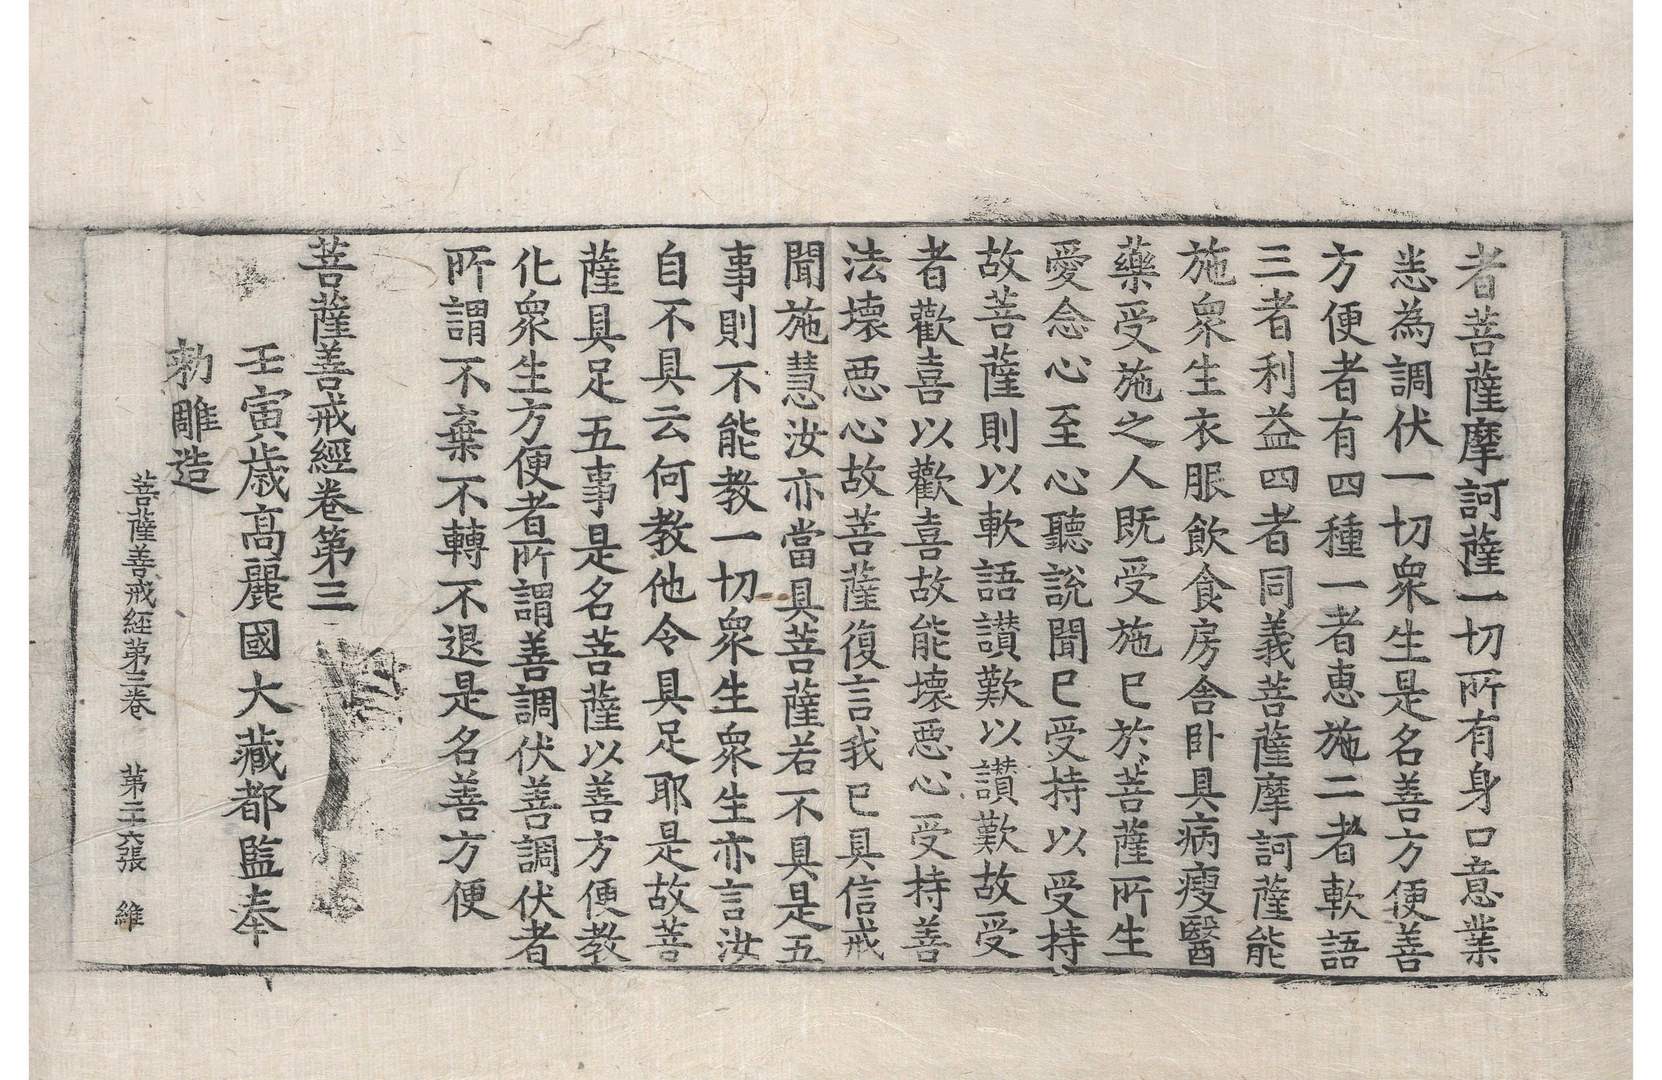 者菩薩摩訶薩一切所有身口意業
悉為調伏一切衆生是名善方便善
方便者有四種一者惠施二者軟語
三者利益四者同義菩薩摩訶薩能
施衆生衣服飲食房舍卧具病瘦醫
藥受施之人既受施已於菩薩所生
愛念心至心聽說聞已受持以受持
故菩薩則以軟語讃歎以讃歎故受
者歡喜以歡喜故能壞惡心受持善
法壞惡心故菩薩復言我已具信戒
聞施慧汝亦當具菩薩若不具是五
事則不能教一切衆生衆生亦言汝
自不具云何教他令具足耶是故菩
薩具足五事是名菩薩以善方便教
化衆生方便者所謂善調伏善調伏者
所謂不棄不轉不退是名善方便
菩薩善戒經卷第三
壬寅歲高麗國大藏都監奉
勅雕造
菩薩善戒經第三卷 第二十六張 維